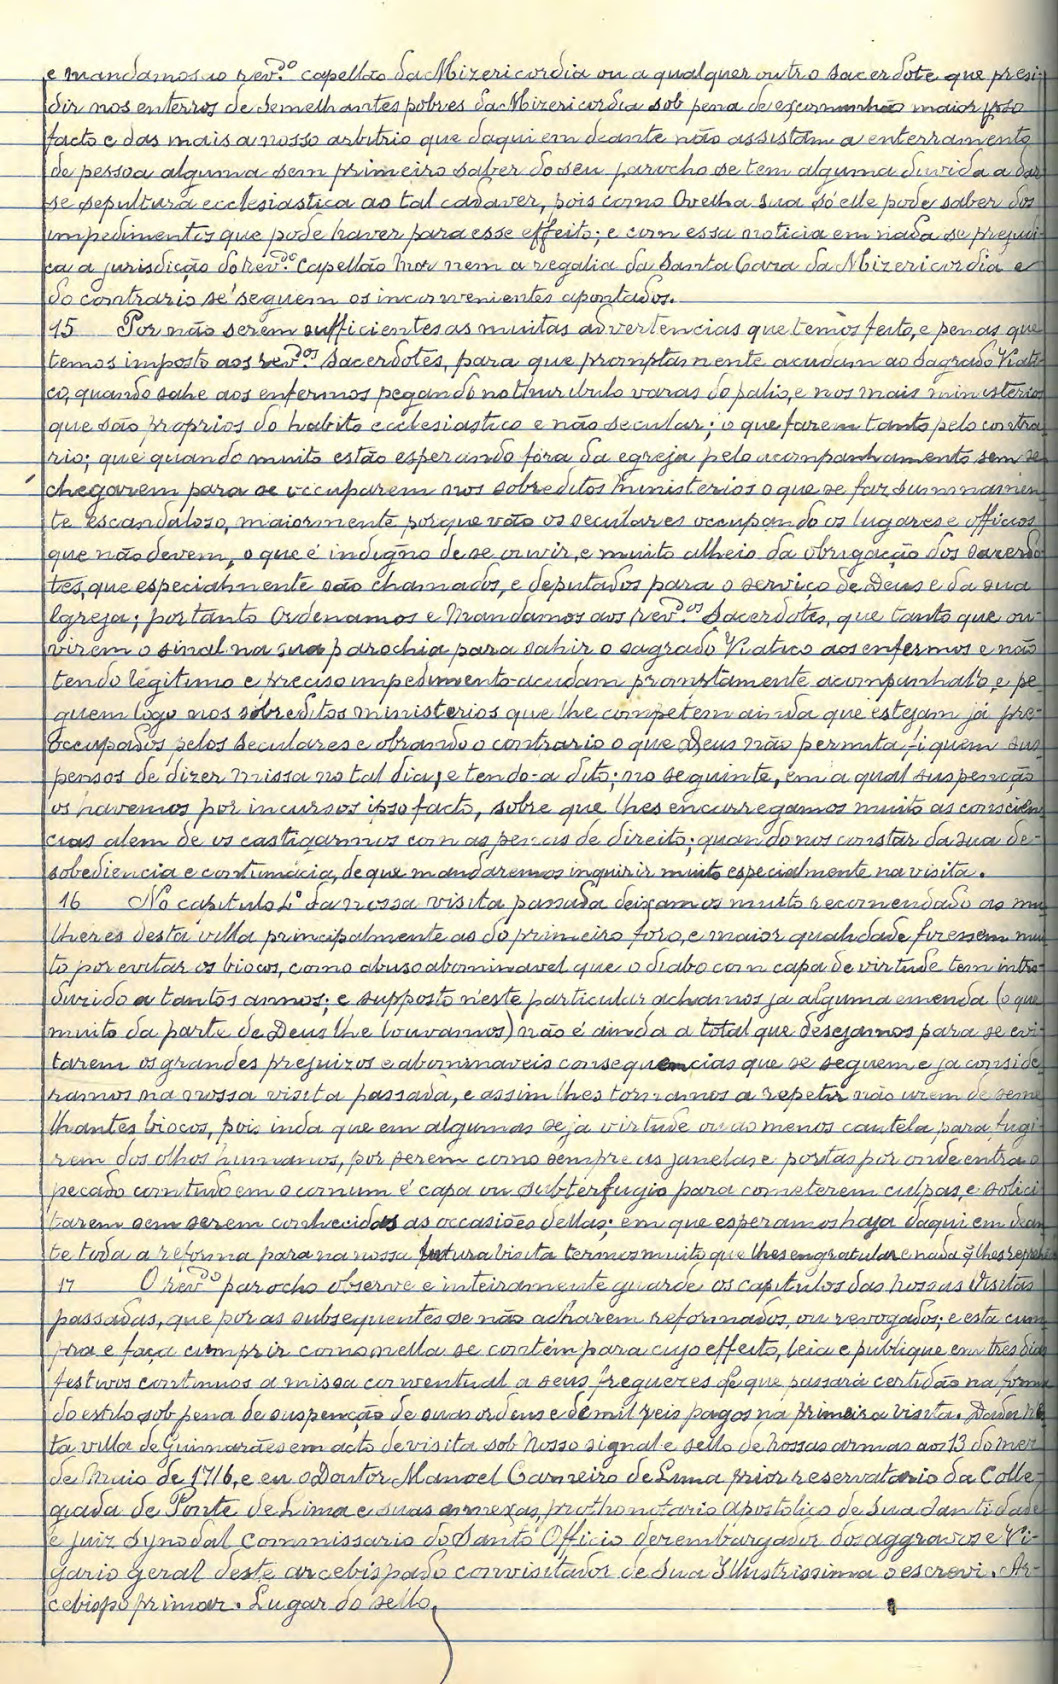 e mandamos ao rev.do capellão da Mizericordia ou a qualquer outro sacerdote que presi-
dir nos enterros de semelhantes pobres da Mizericordia sob pena de excomunhão maior ipso
facto e das mais a nosso arbitrio que daqui em deante não assistam a enterramento
de pessoa alguma sem primeiro saber do seu parocho se tem alguma duvida a dar-
se sepultura ecclesiastica ao tal cadaver, pois como Ovelha sua só elle pode saber dos
impedimentos que pode haver para esse effeito; e com essa noticia em nada se prejudi-
ca a jurisdição do rev.do Capellão Mor nem a regalia da Santa Caza da Mizericordia e
do contrario se seguem os inconvenientes apontados.
15 Por não serem sufficientes as muitas advertencias que temos feito, e penas que
temos imposto aos rev.dos Sacerdotes, para que promptamente acudam ao Sagrado Viati-
co, quando sahe aos enfermos pegando no thuribulo varas do palio, e nos mais ministerios
que são proprios do habito ecclesiastico e não secular; o que fazem tanto pelo contra-
rio; que quando muito estão esperando fóra da egreja pelo acompanhamento sem se
chegarem para se occuparem nos sobreditos ministerios o que se faz summamen-
te escandaloso, maiormente porque vão os seculares occupando os lugares e officios
que não devem, o que é indigno de se ouvir, e muito alheio da obrigação dos sacerdo-
tes, que especialmente são chamados, e deputados para o serviço de Deus e da sua
Egreja; portanto Ordenamos e Mandamos aos rev.dos Sacerdotes, que tanto que ou-
virem o sinal na sua parochia para sahir o sagrado Viatico aos enfermos e não
tendo legitimo e preciso impedimento acudam promptamente acompanhal'o, e pe-
guem logo nos sobreditos ministerios que lhe competem ainda que estejam já pre-
occupados pelos seculares e obrando o contrario o que Deus não permita fiquem sus-
pensos de dizer missa no tal dia; e tendo-a dito; no seguinte, em a qual suspenção
os havemos por incursos ipso facto, sobre que lhes encarregamos muito as conscien-
cias alem de os castigarmos com as penas de direito; quando nos constar da sua de-
sobediencia e contumácia, de que mandaremos inquirir muito especialmente na visita.
16 No capitulo 4º da nossa visita passada deixamos muito recomendado as mu-
lheres desta villa principalmente as do primeiro foro, e maior qualidade fizessem mui-
to por evitar os biocos, como abuso abominavel que o diabo com capa de virtude tem intro-
duzido a tantos annos; e supposto n'este particular achamos ja alguma emenda (o que
muito da parte de Deus lhe louvamos) não é ainda a total que desejamos para se evi-
tarem os grandes prejuizos e abominaveis consequencias que se seguem e ja conside-
ramos na nossa visita passada, e assim lhes tornamos a repetir não uzem de seme-
lhantes biocos, pois inda que em algumas seja virtude ou ao menos cautela, para fugi-
rem dos olhos humanos, por serem como sempre as janelas e portas por onde entra o
pecado comtudo em o comum é capa ou subterfugio para cometerem culpas, e solici-
tarem sem serem conhecidas as occasiões dellas; em que esperamos haja daqui em dean-
te toda a reforma para na nossa futura visita termos muito que lhes engratular e nada q lhes reprehe
17 O rev.do parocho observe e inteiramente guarde os capitulos das nossas Visitas
passadas, que por as subsequentes se não acharem reformados, ou revogados; e esta cum-
pra e faça cumprir como nella se contém para cujo effeito, leia e publique em tres dias
festivos continuos a missa conventual a seus freguezes de que passará certidão na forma
do estilo sob pena de suspenção de suas ordens e de mil reis pagos na primeira visita. Dada nes-
ta villa de Guimarães em acto de visita sob Nosso signal e sello de nossas armas aos 13 do mez
de Maio de 1716, e eu o Doutor Manoel Carneiro de Lima prior reservatario da Colle-
giada de Ponte de Lima e suas annexas, prothonotario Apostolico de Sua Santidade
e juiz Synodal Commissario do Santo Officio dezembargador dos aggravos e Vi-
gario geral deste arcebispado convisitador de Sua Illustrissima o escrevi. Ar-
cebispo primaz. Lugar do sello.